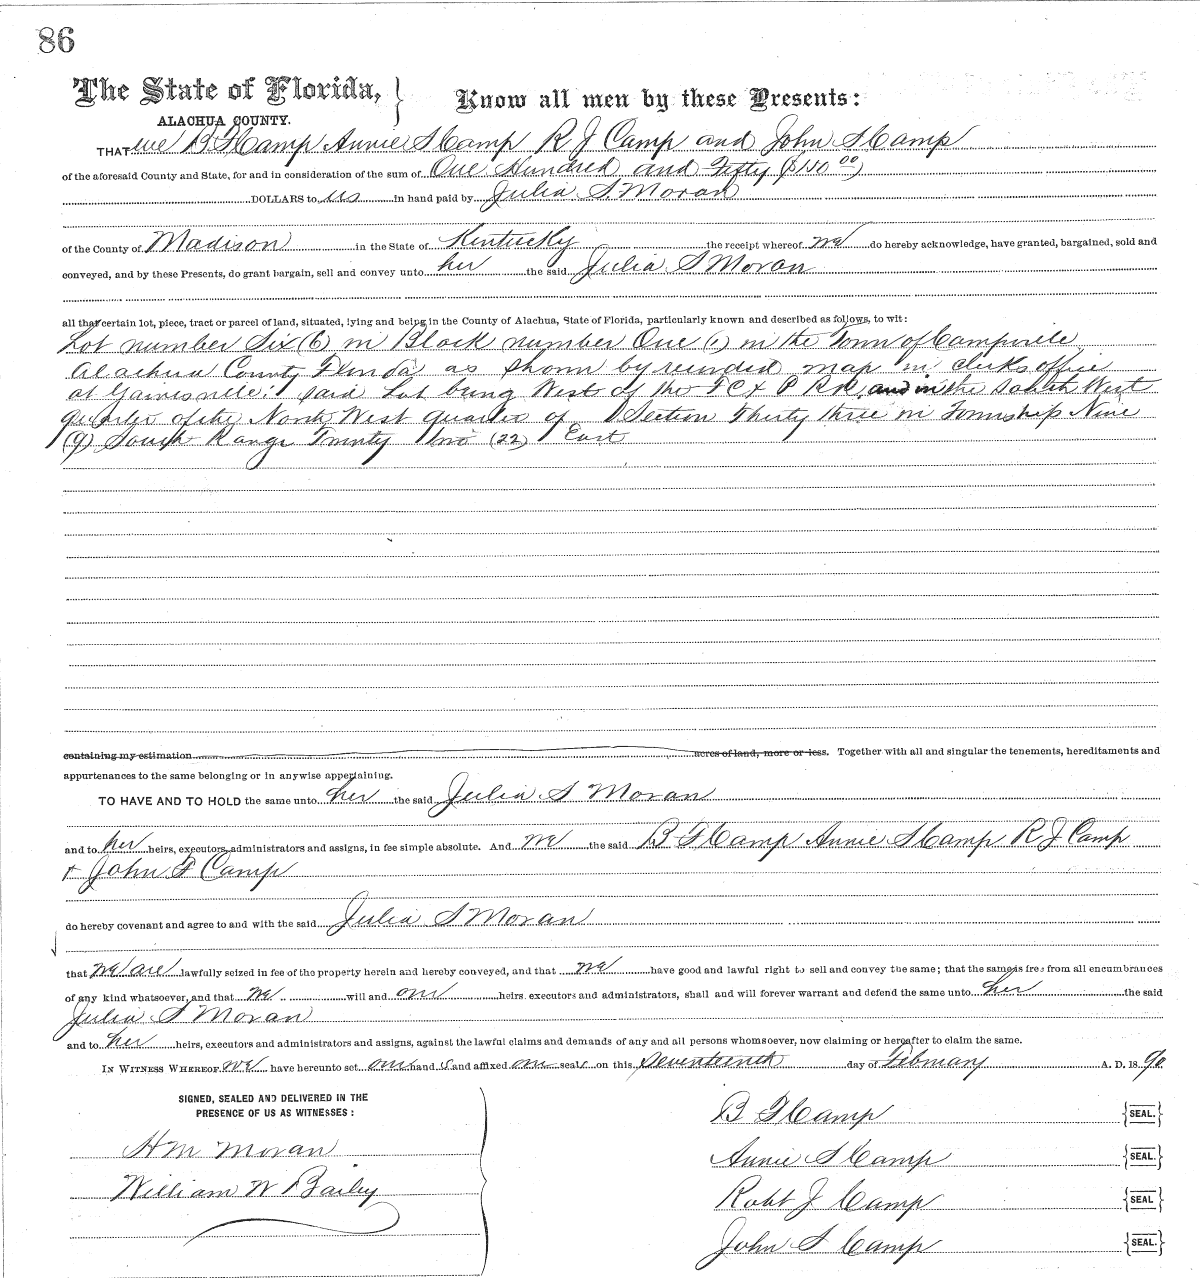 86
The State of Florida, } Know all men by these Presents:
ALACHUA COUNTY.
THAT we B F Camp Annie S Camp R J Camp and John S Camp
of the aforesaid County and State, for and in consideration of the sum of One Hundred and Fifty ($150 00)
DOLLARS to us in hand paid by Julia S. Moran
of the County of Madison in the State of Kentucky the receipt whereof we do hereby acknowledge, have granted, bargained, sold and
conveyed, and by these Presents, do grant bargain, sell and convey unto her the said Julia S Moran
all that certain lot, piece, tract or parcel of land, situated, lying and being in the County of Alachua, State of Florida, particularly known and described as follows, to wit:
Lot number Six (6) in Block number One (1) in the Town of Campville
Alachua County Florida as shown by recorded map in clerks office
at Gainesville: said Lot being West of the F C & P RR and in the South West
quarter of the North West quarter of Section Thirty three in Township Nine
(9) South Range Twenty Two (22) East
containing my estimation acres of land, more or less. Together with all and singular the tenements, hereditaments and
appurtenances to the same belonging or in anywise appertaining.
TO HAVE AND TO HOLD the same unto her the said Julia S Moran
and to her heirs, executors, administrators and assigns, in fee simple absolute. And we the said B F Camp Annie S Camp R J Camp
& John F Camp
do hereby covenant and agree to and with the said Julia S Moran
that we are lawfully seized in fee of the property herein and hereby conveyed, and that we have good and lawful right to sell and convey the same; that the same is free from all encumbrances
of any kind whatsoever, and that we will and our heirs. executors and administrators, shall and will forever warrant and defend the same unto her the said
Julia S Moran
and to her heirs, executors and administrators and assigns, against the lawful claims and demands of any and all persons whomsoever, now claiming or hereafter to claim the same.
IN WITNESS WHEREOF, we have hereunto set our hand s and affixed our seal s on this seventeenth day of February A. D. 1890
SIGNED, SEALED AND DELIVERED IN THE
PRESENCE OF US AS WITNESSES:
H M Moran
William W Bailey
B F Camp {SEAL.}
Annie S Camp {SEAL.}
Robt J Camp {SEAL}
John S Camp {SEAL.}